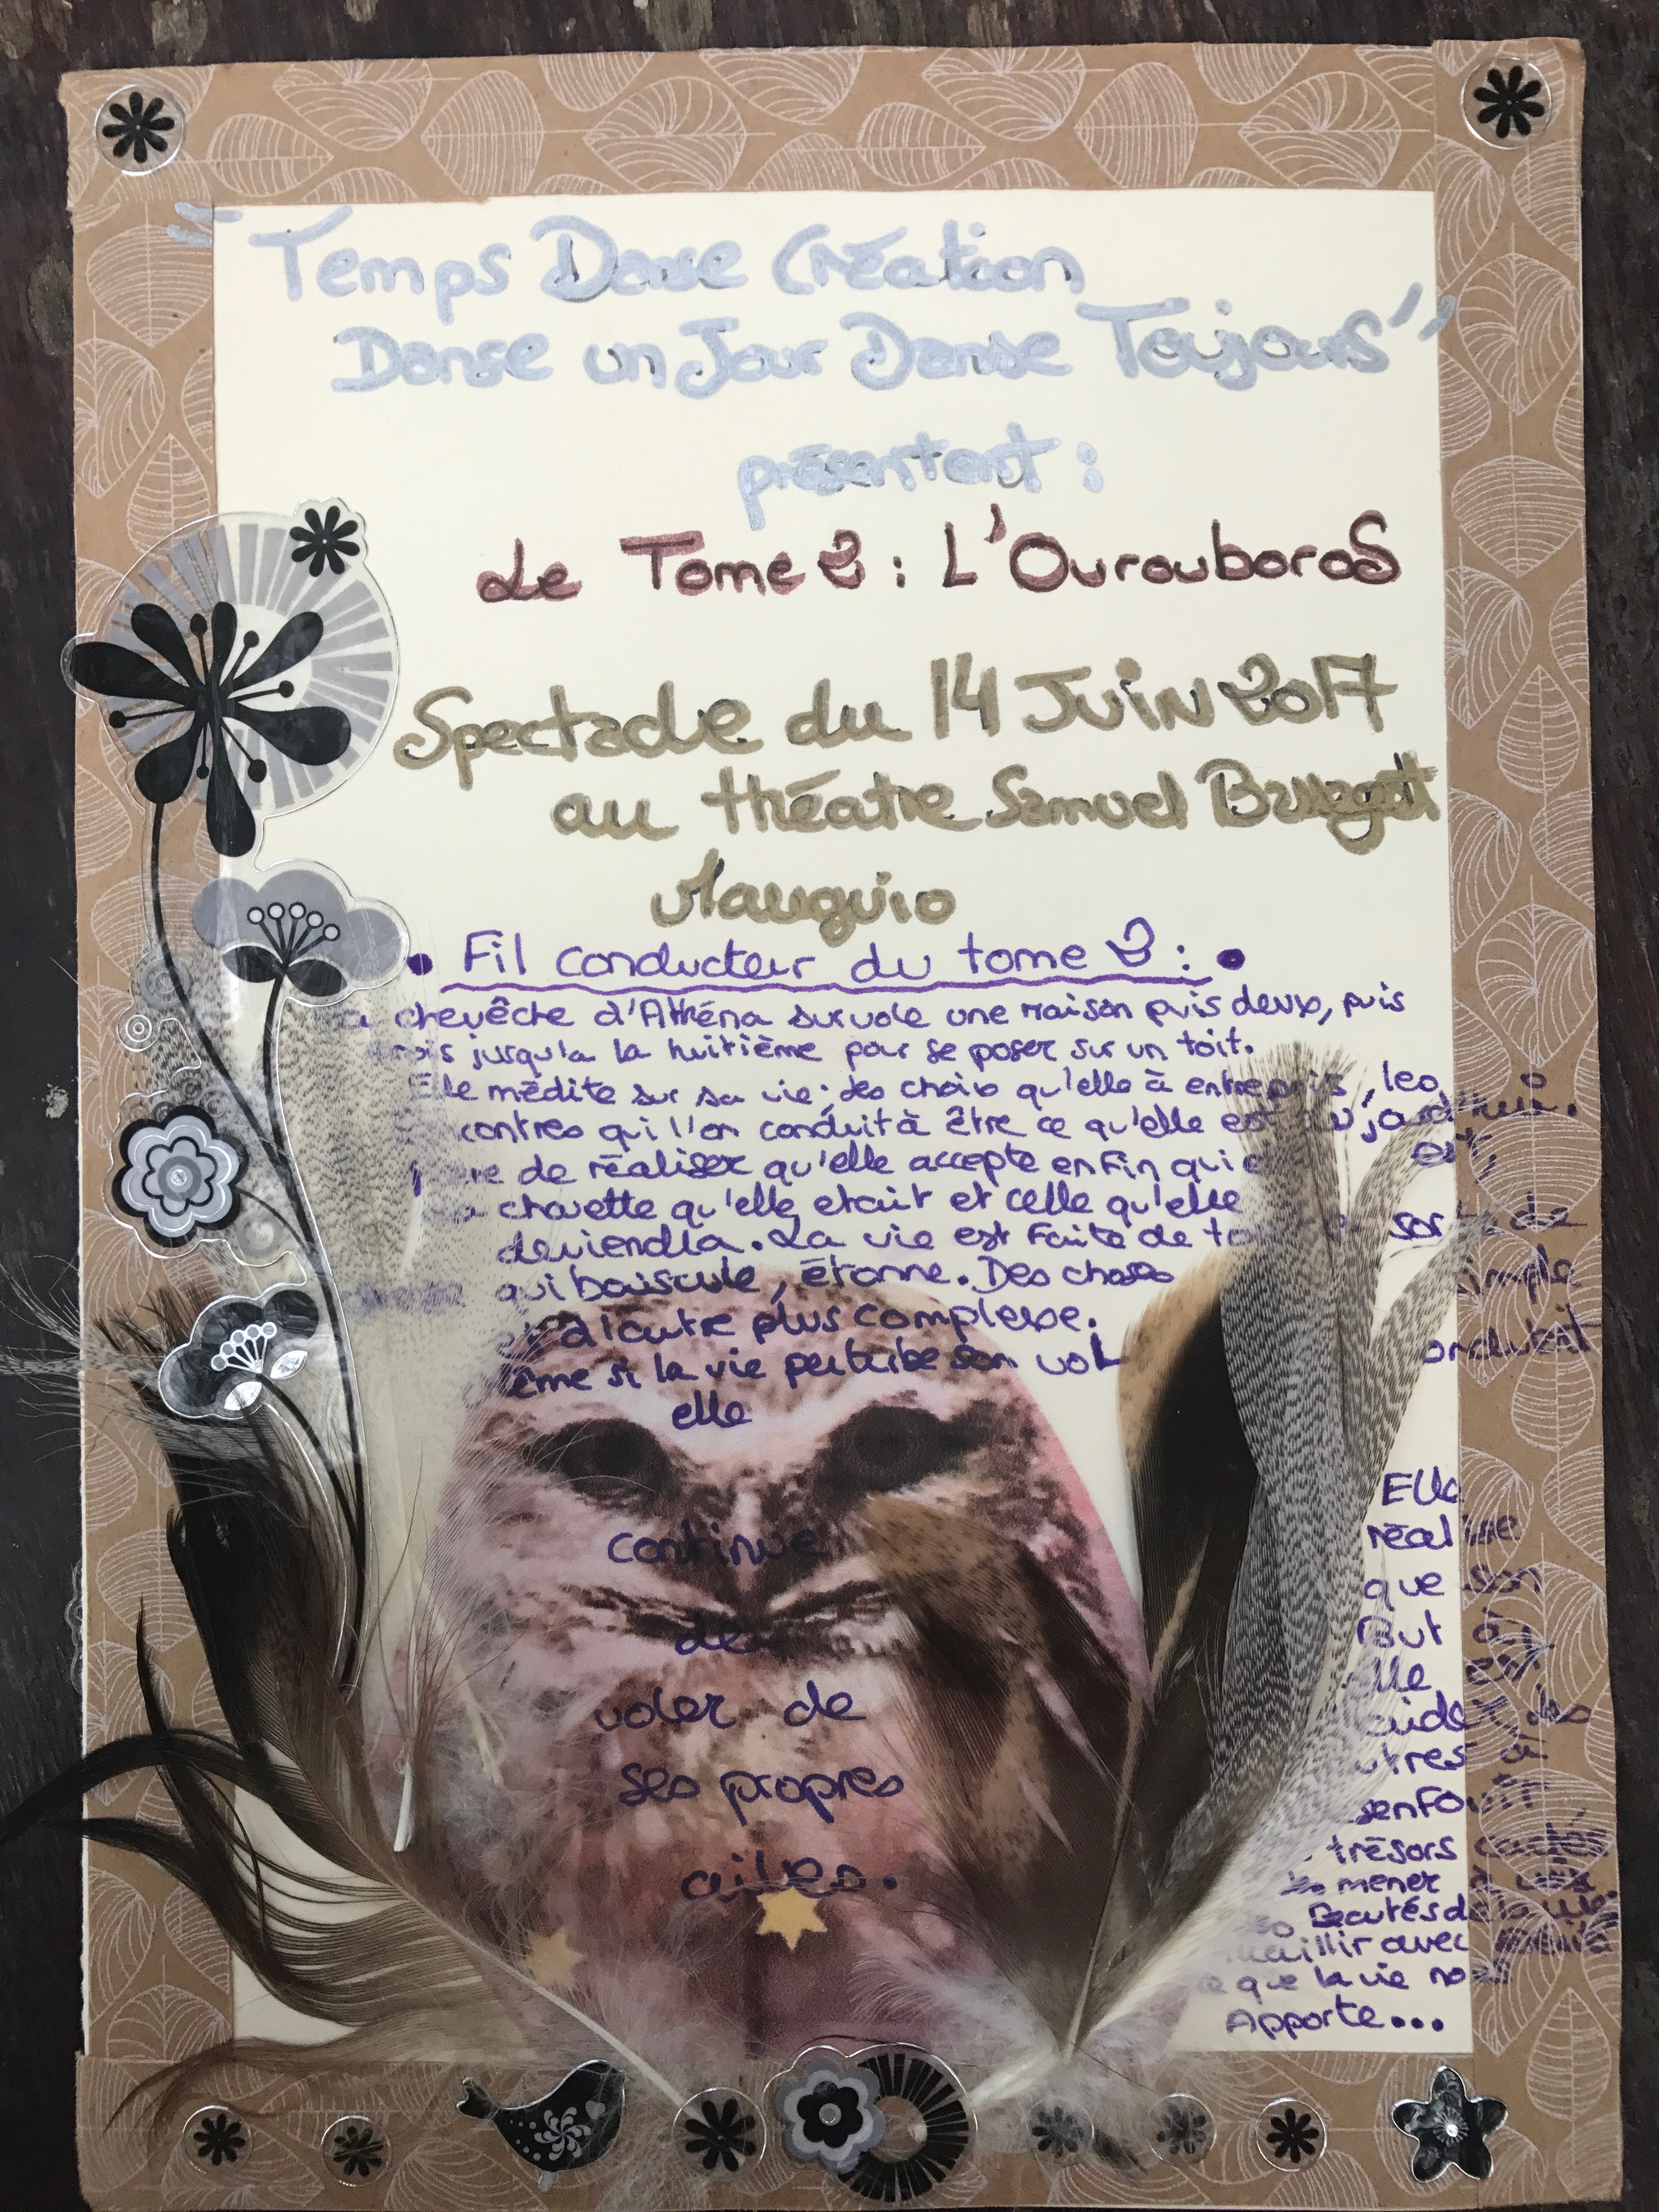 "Temps Danse Création
Danse un Jour Danse Toujours"
présentent :
Le Tome 2 : L'OurouboroS
Spectacle du 14 Juin 2017
au théatre Samuel
Mauguio
• Fil conducteur du tome 2 : •
chevêche d'Athéna survole une maison puis deux, puis
jusqu'a la huitième pour se poser sur un toit.
Elle médite sur sa vie ; des choix qu'elle à entrepris, les
contres qui l'on conduit à être ce qu'elle est aujourd'hui.
de réaliser qu'elle accepte enfin qui est,
chouette qu'elle etait et celle qu'elle
deviendra. La vie est faite de sorte de
qui bouscule, étonne. Des choses simple
d'autre plus complexe.
ême si la vie perturbe son vol
elle
continue
de
voler de
ses propres
ailes.
Elle
réalise
que son
But à
elle
aide les
utres à
enfouir
trésors cachés
mener
Beautés de la vie
aillir avec
que la vie
Apporte...